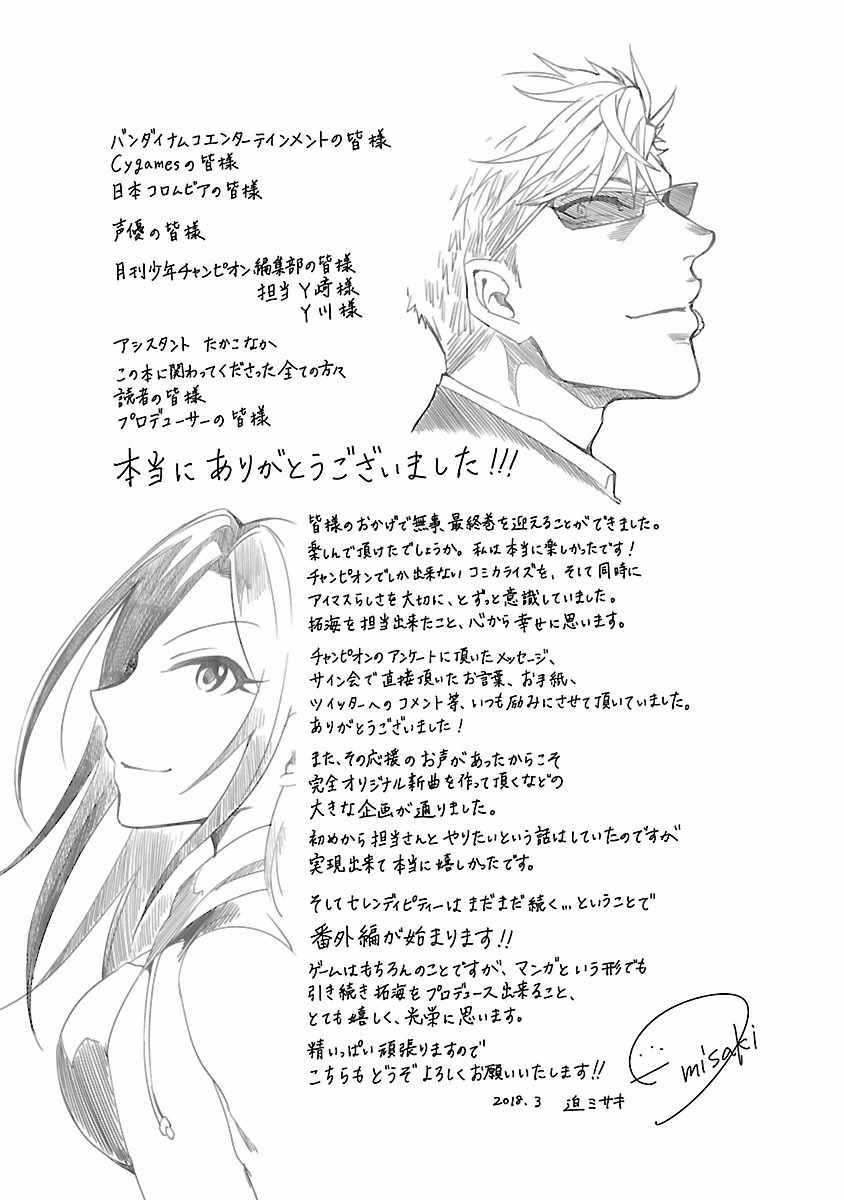 バンダイナムコエンターテインメントの皆様
Cygamesの皆様
日本コロムビアの皆様
声優の皆様
月刊少年チャンピオン編集部の皆様
担当 Y崎様
Y川様
アシスタント たかこなか
この本に関わってくださった全ての方々
読者の皆様
プロデューサーの皆様
本当にありがとうございました!!!
皆様のおかげで無事、最終巻を迎えることができました。
楽しんで頂けたでしょうか。私は本当に楽しかったです!
チャンピオンでしか出来ないコミカライズを、そして同時に
アイマスらしさを大切に、とずっと意識していました。
拓海を担当出来たこと、心から幸せに思います。
チャンピオンのアンケートに頂いたメッセージ、
サイン会で直接頂いたお言葉、お手紙、
ツイッターへのコメント等、いつも励みにさせて頂いていました。
ありがとうございました!
また、その応援のお声があったからこそ
完全オリジナル新曲を作って頂くなどの
大きな企画が通りました。
初めから担当さんとやりたいという話はしていたのですが
実現出来て本当に嬉しかったです。
そしてセレンディピティーはまだまだ続く…ということで
番外編が始まります!!
ゲームはもちろんのことですが、マンガという形でも
引き続き拓海をプロデュース出来ること、
とても嬉しく、光栄に思います。
精いっぱい頑張りますので
こちらもどうぞよろしくお願いいたします!!
misaki
2018.3 迫ミサキ